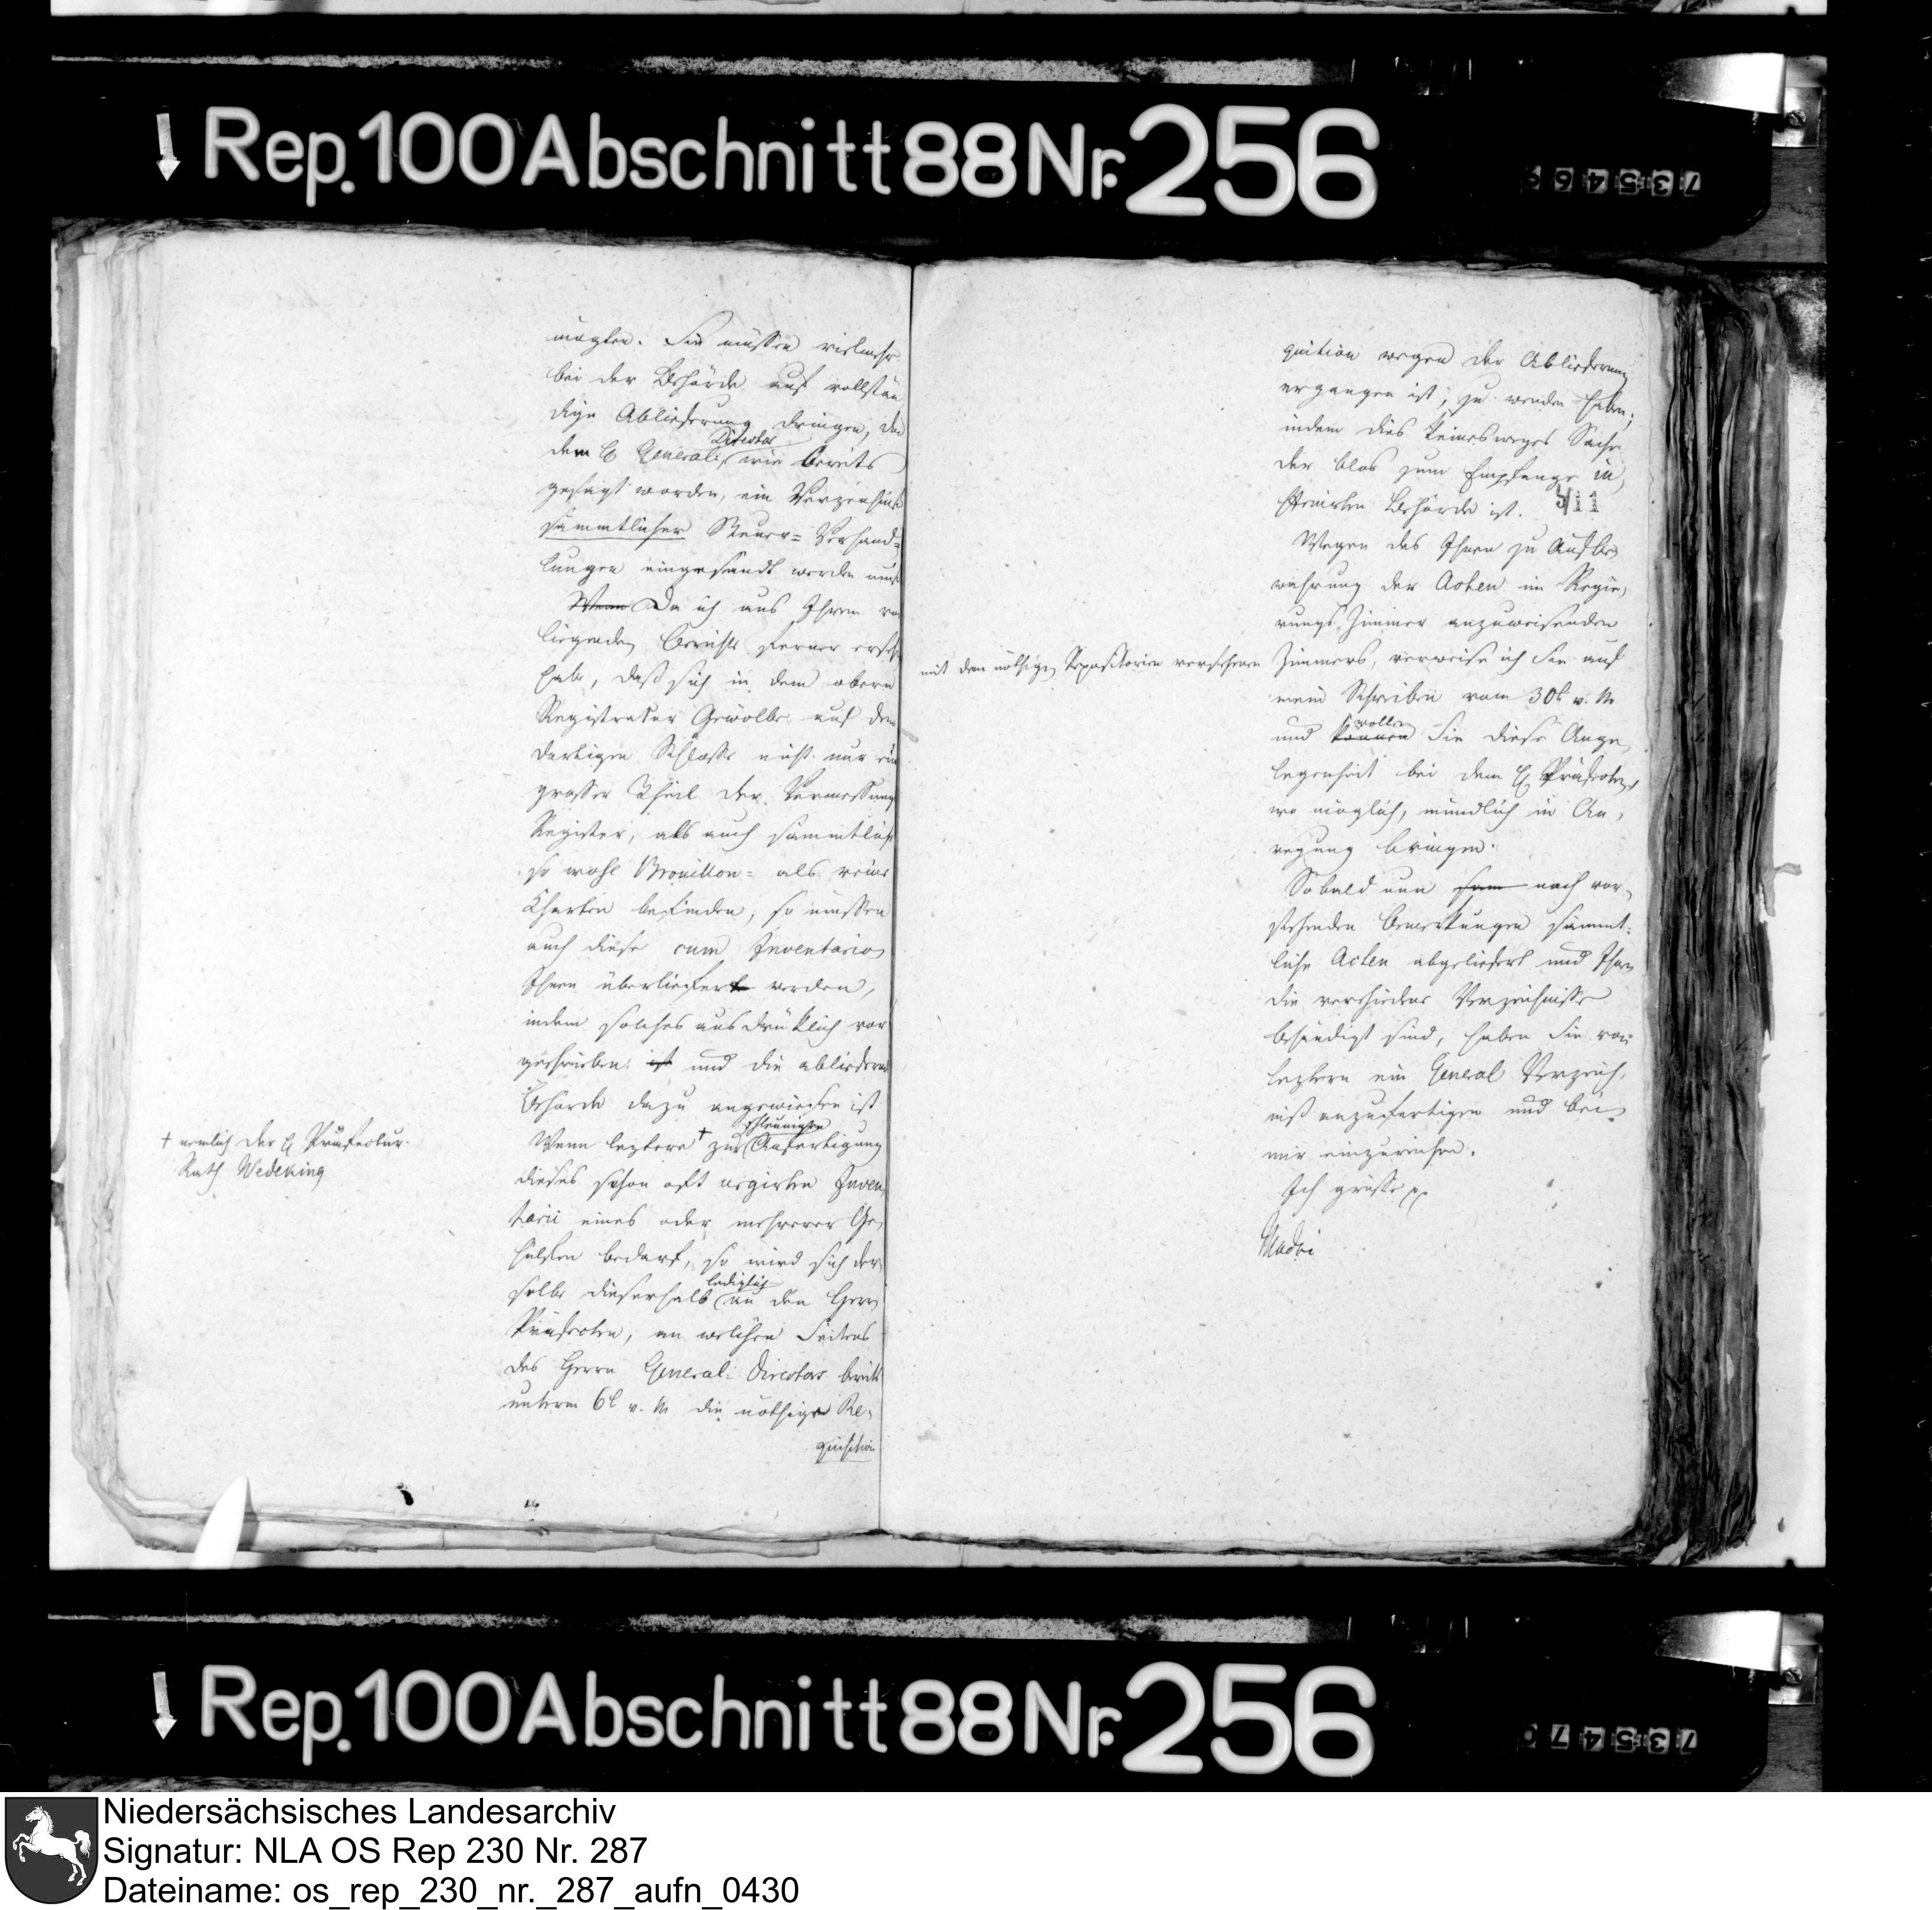 Rep. 100 Abschnitt 88 Nr. 256
735466
mögten. Sie müssen vielmehr
bei der Behörde auf vollstän
dige Ablieferung dringen, da
Director
dem H General: wie bereits
gesagt worden, ein Verzeichniß
sämmtlicher Steuer= Verhand=
lungen eingesandt werden muß
Wenn Da ich aus Ihrem vor
liegenden Berichte ferner ersehe
habe, daß sich in dem obern
Registratur Gewölbe auf dem
dortigen Schlosse nicht nur ein
grosser Theil der Vermessungs
Register, als auch sämmtliche
so wohl Brouillon= als reine
Charten befinden, so müssen
auch diese cum Inventario
Ihnen überliefert werden,
indem solches ausdrüklich vor
geschrieben ist und die abliefernde
Behörde dazu angewiesen ist
schleunigen
Wenn leztere † zur Anfertigung
† nemlich der H Präfectur-
Rath Wedeking
dieses schon oft urgirten Inven
tarii eines oder mehrerer Ge-
hülfen bedarf, so wird sich der
lediglich
selbe dieserhalb an den Herrn
Präfecten, an welchen Seitens
des Herrn General-Directors bereits
unterm 6t v. M die nöthige Re-
quisition
quition wegen der Ablieferung
ergangen ist, zu wenden haben;
indem dies keinesweges Sache
der blos zum Empfange in
struirten Behörde ist.
511
Wegen des Ihnen zu Aufbe-
wahrung der Acten im Regie-
rungs Zimmer anzuweisenden
mit den nöthigen Repositorien versehenen Zimmers, verweise ich Sie auf
mein Schreiben vom 30t v. M
wollen
und können Sie diese Ange-
legenheit bei dem H Präfecten,
wo möglich, mündlich in An-
regung bringen.
Sobald nun nach vor-
stehenden Bemerkungen sämmt-
liche Acten abgeliefert und Ihnen
die verschiedene Verzeichnisse
behändigt sind, haben Sie von
leztern ein General Verzeich-
niß anzufertigen und bei
mir einzureichen.
Ich grüsse pp
Rep. 100 Abschnitt 88 Nr. 256
735470
Niedersächsisches Landesarchiv
Signatur: NLA OS Rep 230 Nr. 287
Dateiname: os_rep_230_nr._287_aufn_0430